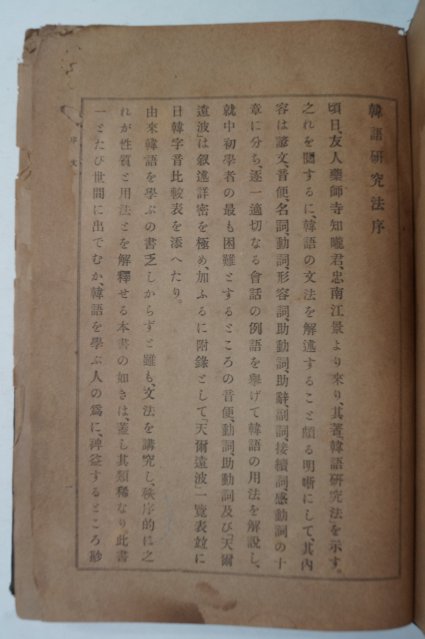 韓語研究法序
頃日、友人藥師寺知曨君、忠南江景より來り、其著「韓語研究法を示す。
之れを閲するに、韓語の文法を解述すること頗る明晰にして、其內
容は諺文、音便、名詞、動詞、形容詞、助動詞、助辭副詞、接續詞、感動詞の十
章に分ち、逐一適切なる會話の例語を擧げて韓語の用法を解說し、
就中初學者の最も困難とするところの音便、動詞、助動詞及び「天爾
遠波」は叙述詳密を極め、加ふるに附錄として「天爾遠波」一覽表竝に
日韓字音比較表を添へたり。
由來韓語を學ぶの書乏しからずと雖も、文法を講究し、秩序的に之
れが性質と用法とを解釋せる本書の如きは、蓋し其類稀なり此書
一とたび世間に出でむか、韓語を學ぶ人の爲に、裨益するところ尠
序文
一